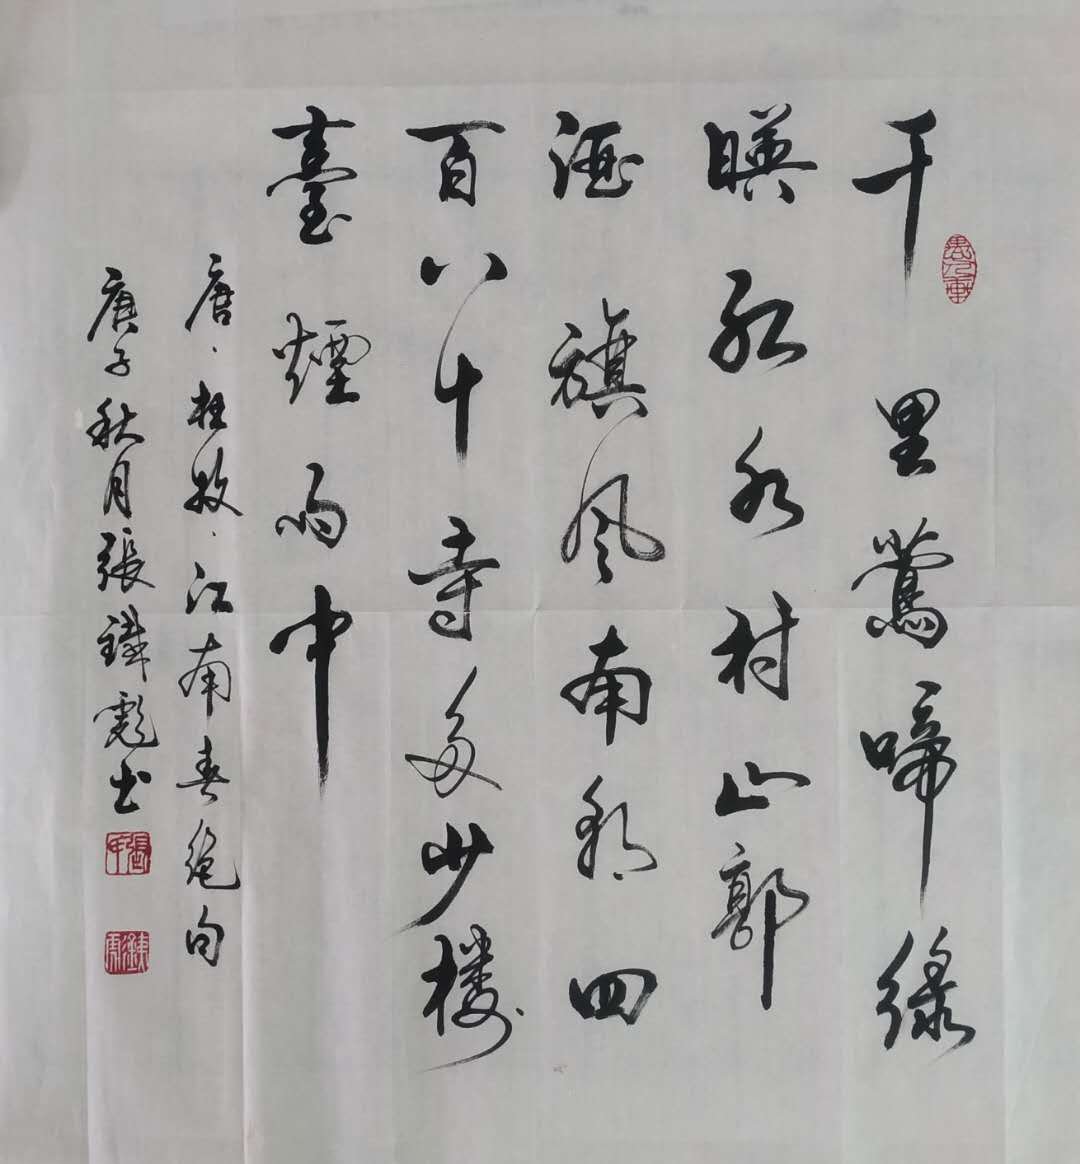 千里莺啼绿
暎红水村山郭
酒旗风南朝四
百八十寺多少楼
臺煙雨中
唐·杜牧·江南春绝句
庚子秋月張鐵彪书